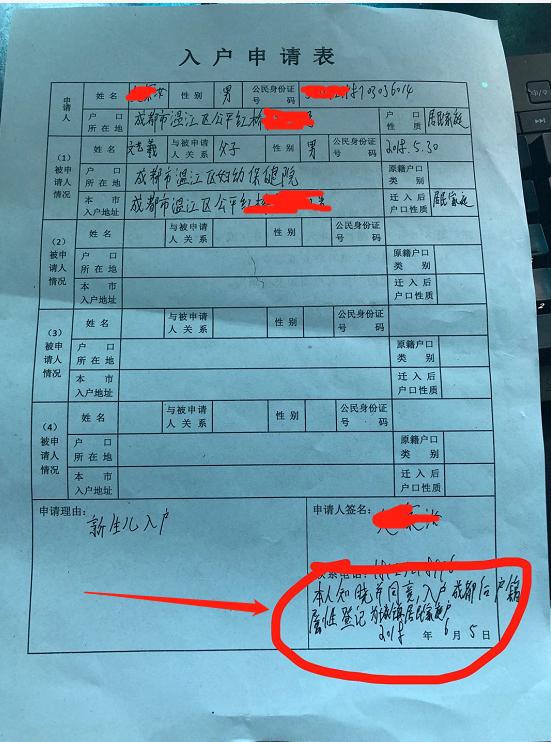 入户申请表
申请人 姓名 性别 男 公民身份证号码 703036014
户口所在地 成都市温江区公平红桥 户口性质 居民家庭
(1)被申请人情况 姓名 与被申请人关系 父子 性别 男 公民身份证号码 2018.5.30
户口所在地 成都市温江区妇幼保健院 原籍户口类别
本市入户地址 成都市温江区公平红桥 迁入后户口性质 居民家庭
(2)被申请人情况 姓名 与被申请人关系 性别 公民身份证号码
户口所在地 原籍户口类别
本市入户地址 迁入后户口性质
(3)被申请人情况 姓名 与被申请人关系 性别 公民身份证号码
户口所在地 原籍户口类别
本市入户地址 迁入后户口性质
(4)被申请人情况 姓名 与被申请人关系 性别 公民身份证号码
户口所在地 原籍户口类别
本市入户地址 迁入后户口性质
申请理由:
新生儿入户
申请人签名:
联系电话:
本人知晓并同意,入户成都后户籍
属性登记为城镇居民家庭户
2018年6月5日